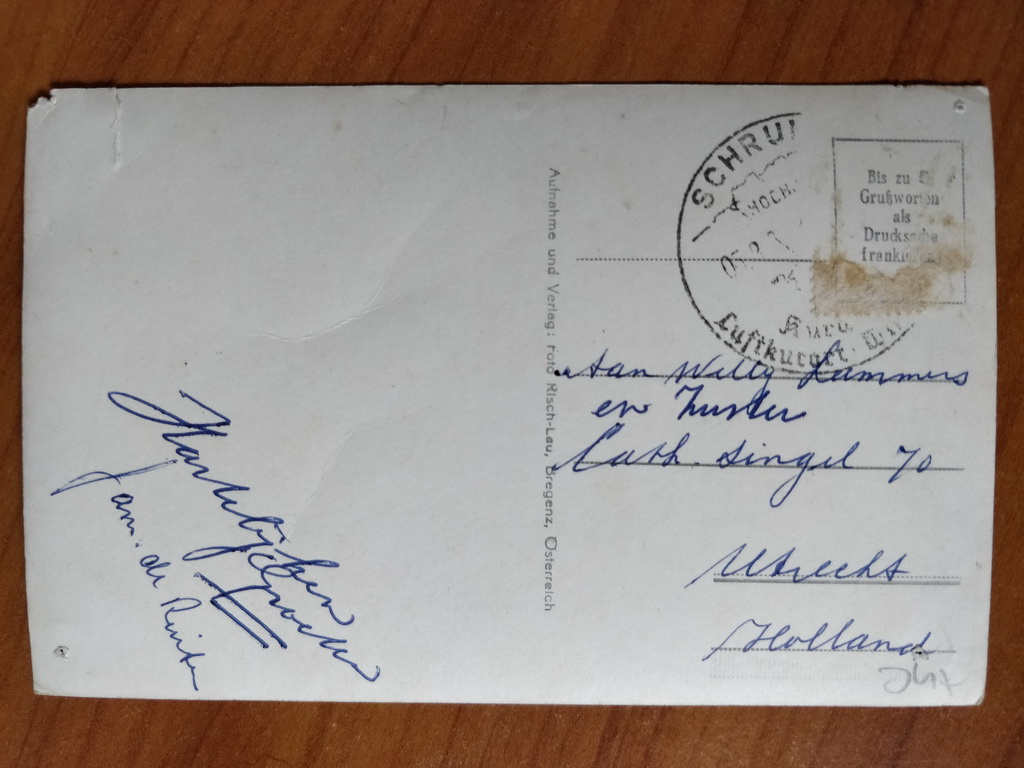 SCHRU
HOCH
Bis zu 5
Grußworten
als
Drucksache
frankieren
Kuro
Luftkurort
Aufnahme und Verlag: Foto Risch-Lau, Bregenz, Österreich
Aan Willy Lammers
en Zuster
Cath. Singel 70
Utrecht
Holland
Hartelijken
Groeten
Fam. de Ruiter